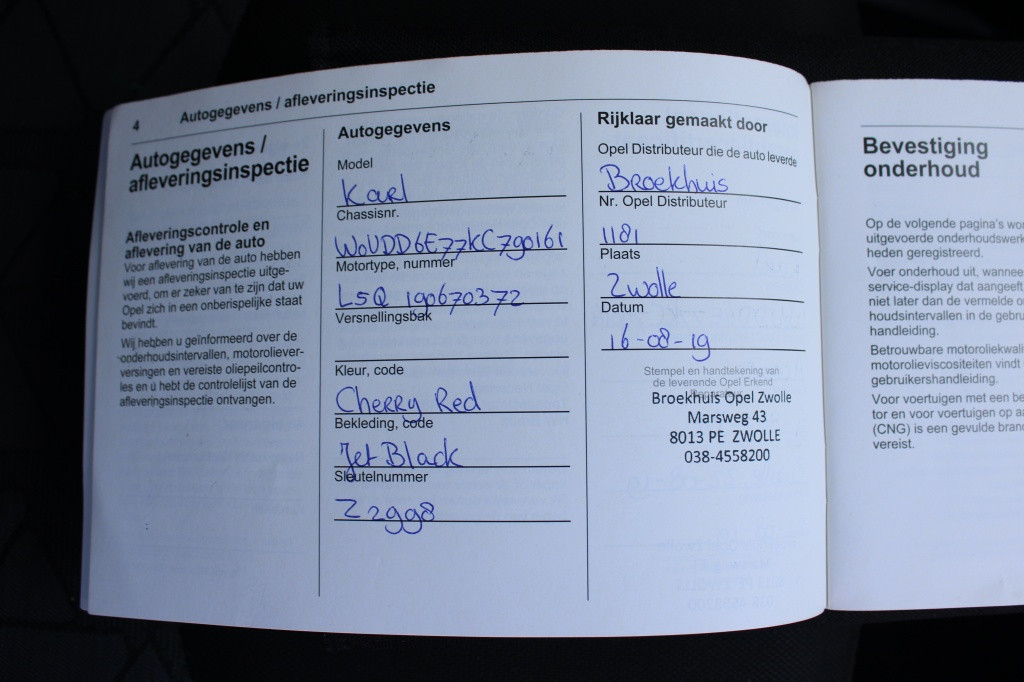 4 Autogegevens / afleveringsinspectie
Autogegevens /
afleveringsinspectie
Afleveringscontrole en
aflevering van de auto
Voor aflevering van de auto hebben
wij een afleveringsinspectie uitge-
voerd, om er zeker van te zijn dat uw
Opel zich in een onberispelijke staat
bevindt.
Wij hebben u geïnformeerd over de
onderhoudsintervallen, motoroliever-
versingen en vereiste oliepeilcontro-
les en u hebt de controlelijst van de
afleveringsinspectie ontvangen.
Autogegevens
Model
Karl
Chassisnr.
W0VDD6E77KC790161
Motortype, nummer
L5Q 190670372
Versnellingsbak
Kleur, code
Cherry Red
Bekleding, code
Jet Black
Sleutelnummer
Z2998
Rijklaar gemaakt door
Opel Distributeur die de auto leverde
Broekhuis
Nr. Opel Distributeur
1181
Plaats
Zwolle
Datum
16-08-19
Stempel en handtekening van
de leverende Opel Erkend
Broekhuis Opel Zwolle
Marsweg 43
8013 PE ZWOLLE
038-4558200
Bevestiging
onderhoud
Op de volgende pagina's
uitgevoerde
heden geregistreerd.
Voer onderhoud uit,
service-display dat
niet later dan de vermelde
houdsintervallen in de
handleiding.
Betrouwbare
motorolieviscositeiten vindt
gebruikershandleiding.
Voor voertuigen met een
tor en voor voertuigen op
(CNG) is een gevulde
vereist.